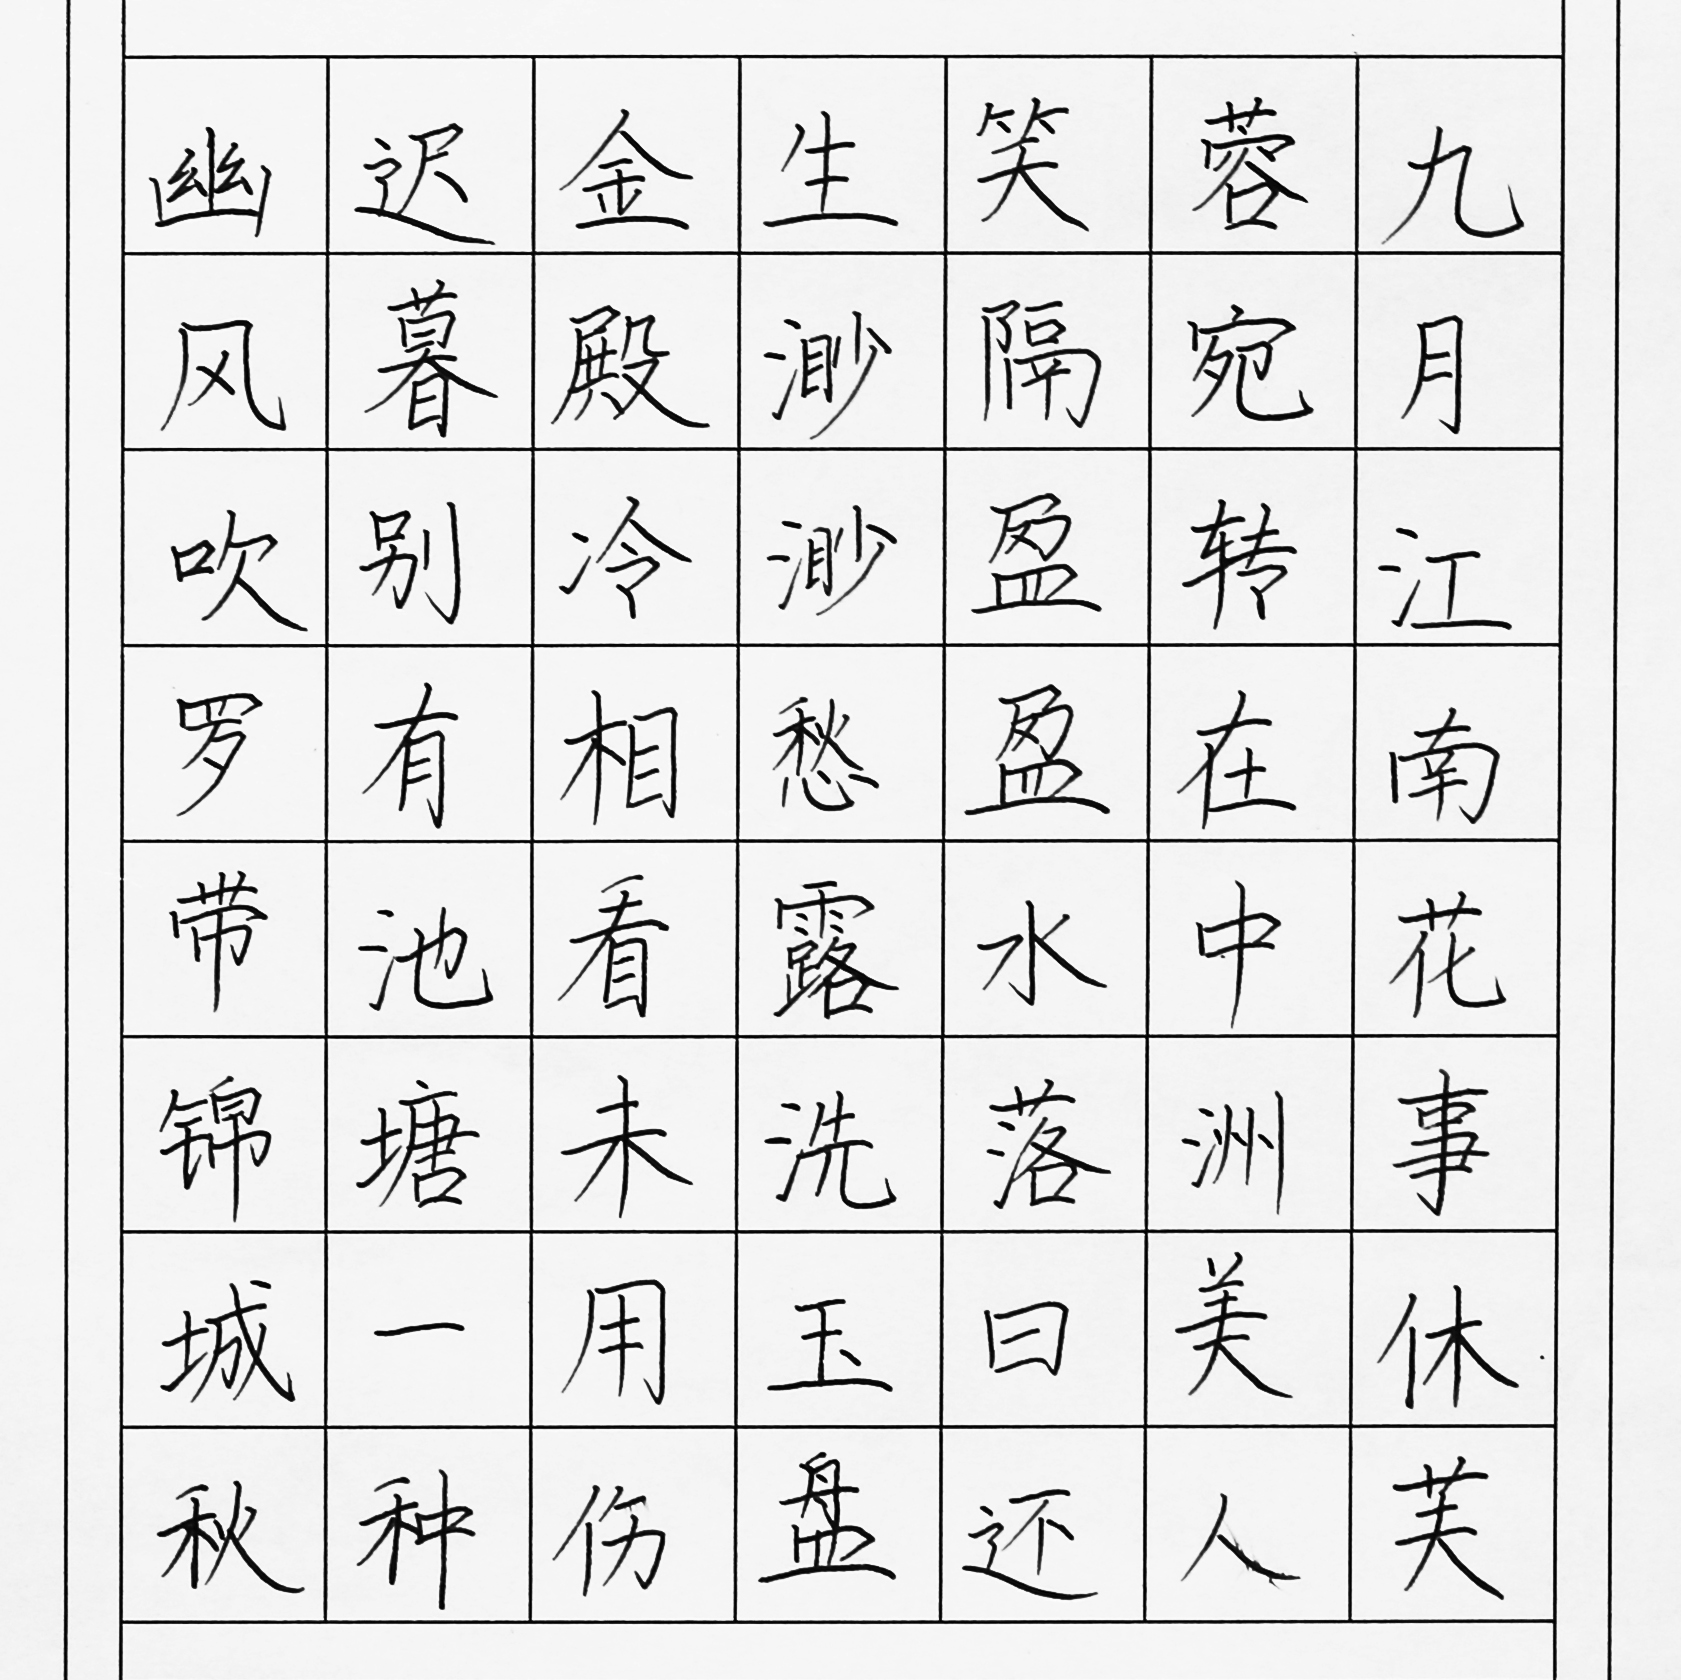 九月江南花事休芙
蓉宛转在中洲美人
笑隔盈盈水落日还
生渺渺愁露洗玉盘
金殿冷相看未用伤
迟暮别有池塘一种
幽风吹罗带锦城秋